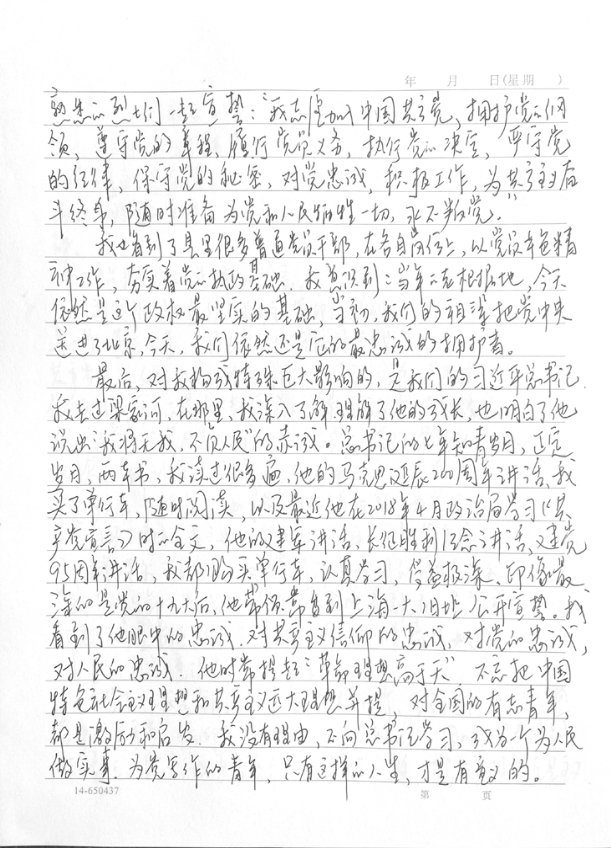 年 月 日(星期 )
熟悉的烈士们一起宣誓：“我志愿加入中国共产党，拥护党的纲
领，遵守党的章程，履行党员义务，执行党的决定，严守党
的纪律，保守党的秘密，对党忠诚，积极工作，为共产主义奋
斗终身，随时准备为党和人民牺牲一切，永不叛党。”
我也看到了县里很多普通党员干部，在各自岗位上，以党员本色精
神工作，夯实着党的执政基础。我意识到：当年的老根据地，今天
依然是这个政权最坚实的基础，当初，我们的祖辈把党中央
送进了北京，今天，我们依然还是它的最忠诚的拥护者。
最后，对我构成特殊巨大影响的，是我们的习近平总书记。
我去过梁家河，在那里，我深入了解理解了他的成长，也明白了他
说出“我将无我，不负人民”的赤诚。总书记的七年知青岁月，正定
岁月，两本书，我读过很多遍，他的马克思诞辰200周年讲话，我
买了单行本，随时阅读，以及最近他在2018年4月政治局学习《共
产党宣言》时的全文，他的建军讲话、长征胜利纪念讲话，建党
95周年讲话，我都购买单行本，认真学习，得益极深。印像最
深的是党的十九大后，他带领常委到上海一大旧址公开宣誓。我
看到了他眼中的忠诚，对共产主义信仰的忠诚，对党的忠诚，
对人民的忠诚。他时常提起“革命理想高于天”，不忘把中国
特色社会主义理想和共产主义远大理想并提，对全国的有志青年，
都是激励和启发。我没有理由，不向总书记学习，成为一个为人民
做实事、为党写作的青年，只有这样的人生，才是有意义的。
14-650437 第 页